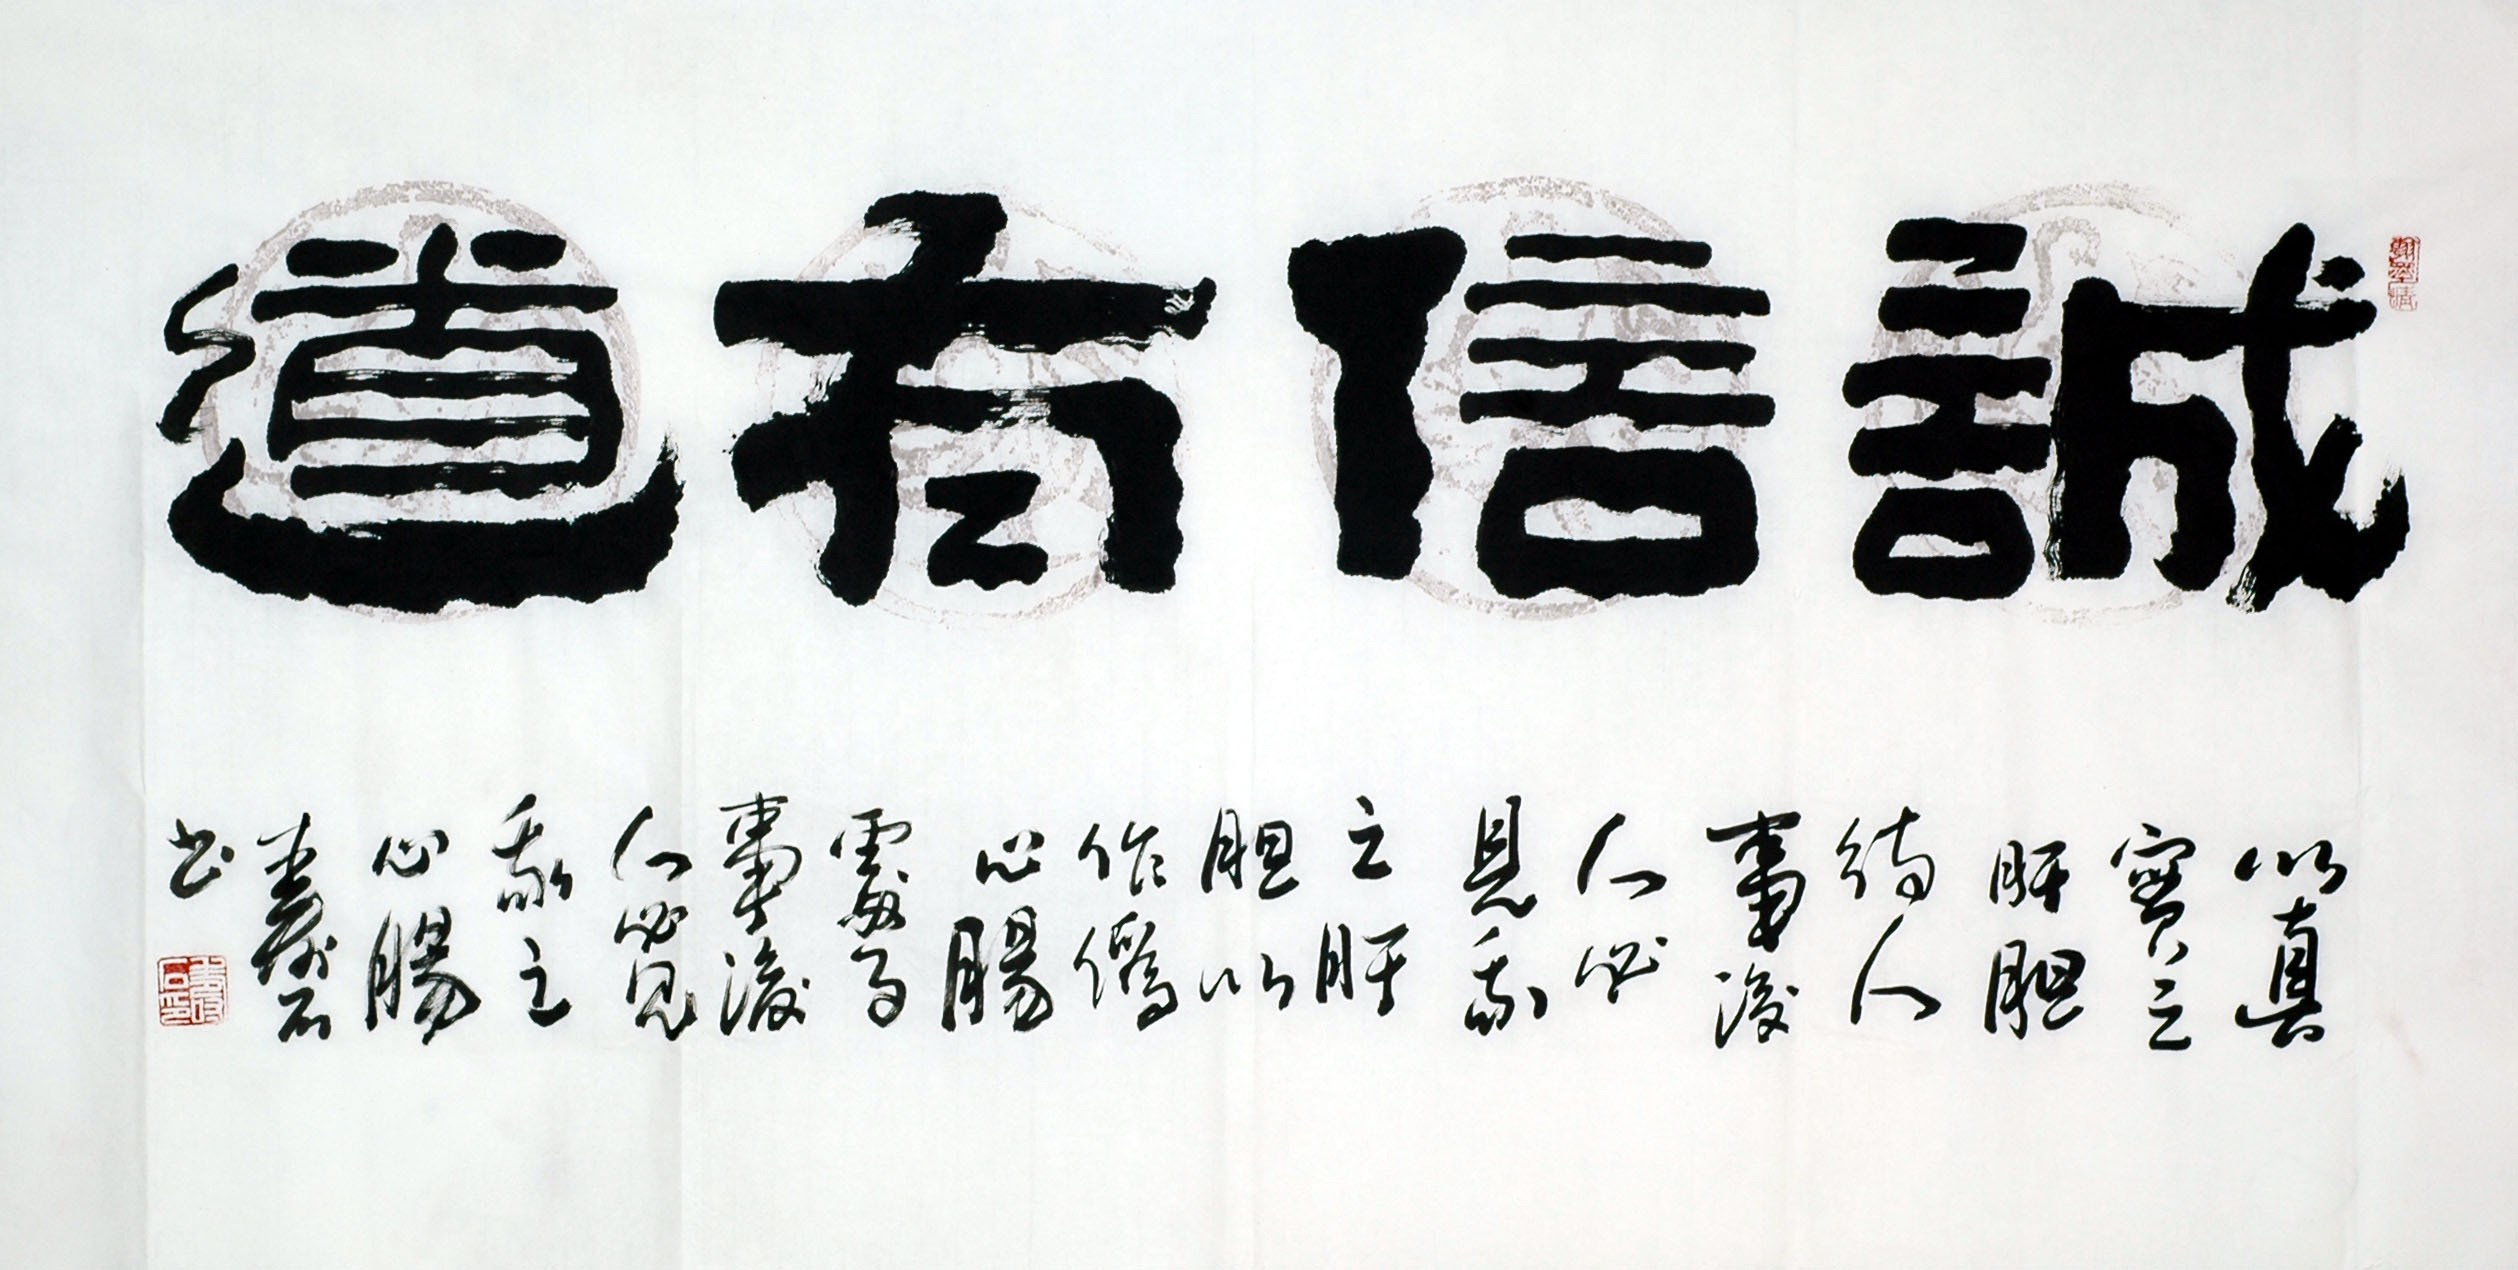 誠信有道
翰墨情
以真
實之
肝胆
待人
事後
人必
見我
之肝
胆以
作僞
心腸
處
事後
人必見
我之
心腸
壽石
書